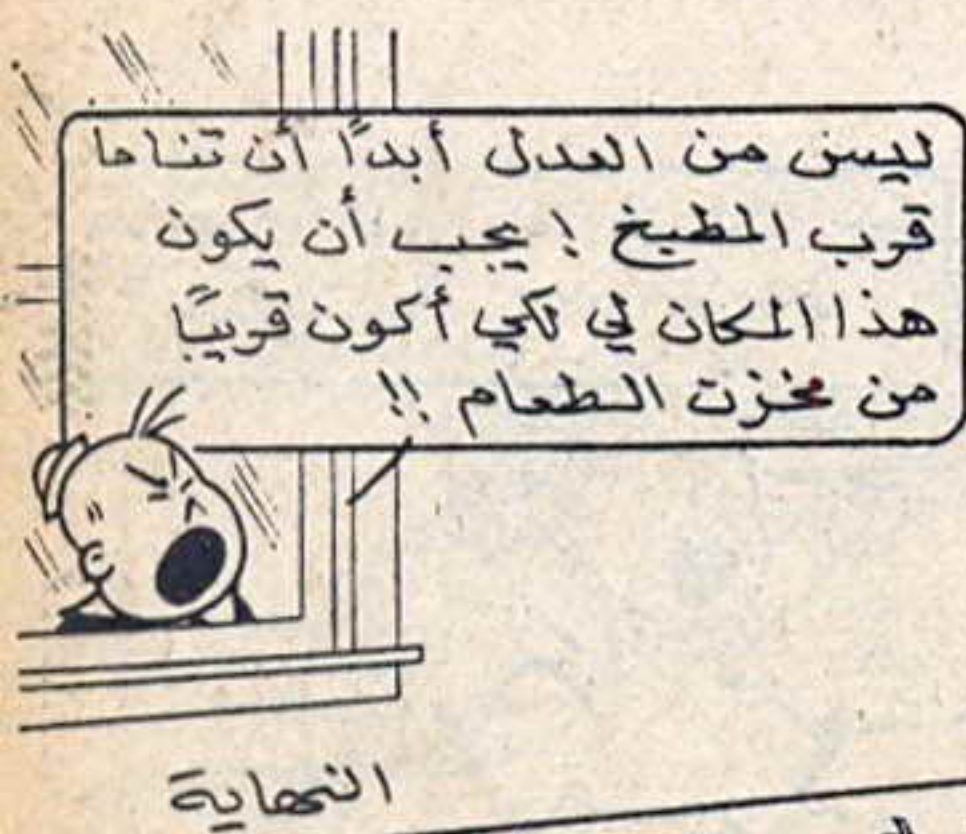 ليس من العدل أبدًا أن تناما
قرب المطبخ ! يجب أن يكون
هذا المكان لي لكي أكون قريبًا
من مخزن الطعام !!
النهاية